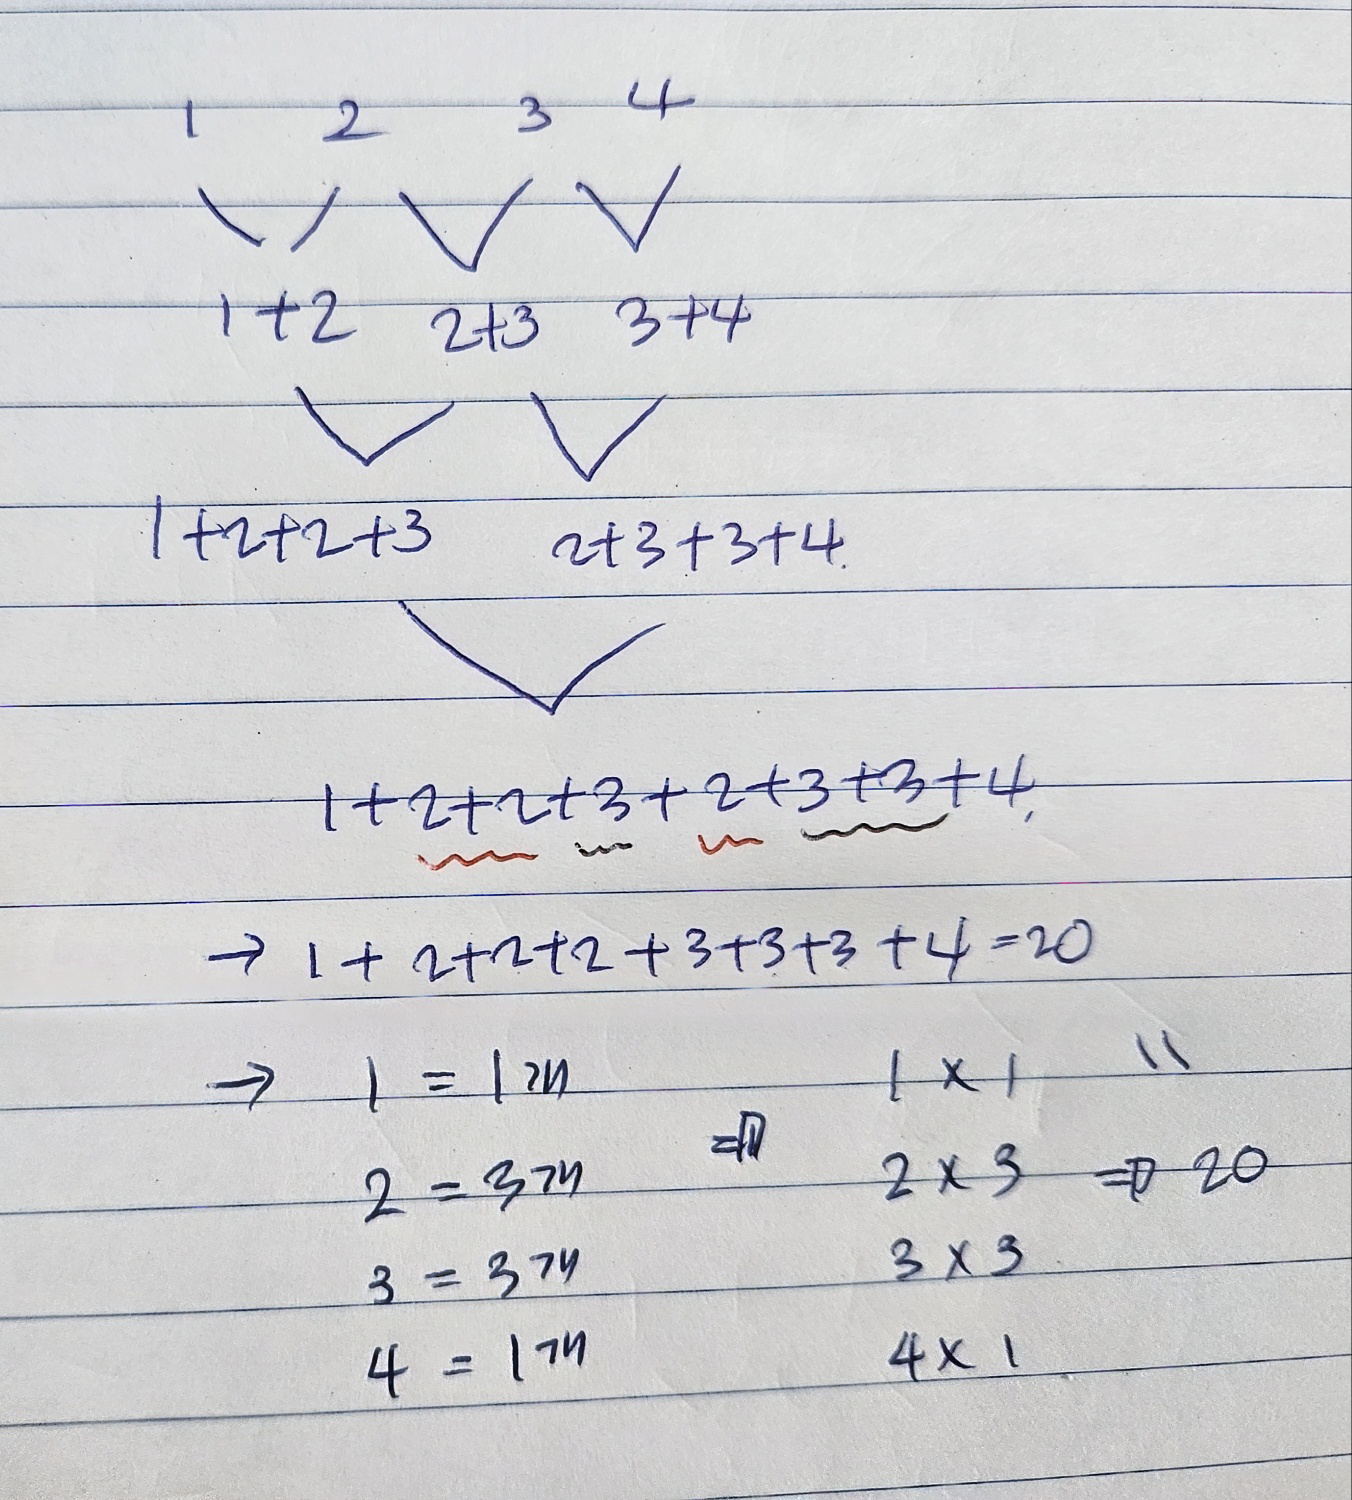 1 2 3 4
1+2 2+3 3+4
1+2+2+3 2+3+3+4.
1+2+2+3+2+3+3+4,
→ 1+ 2+2+2 +3+3+3 +4 =20
→ 1 = 1개 ⇒ 1 × 1 \\
2 = 3개 2 × 3 ⇒ 20
3 = 3개 3 × 3
4 = 1개 4 × 1